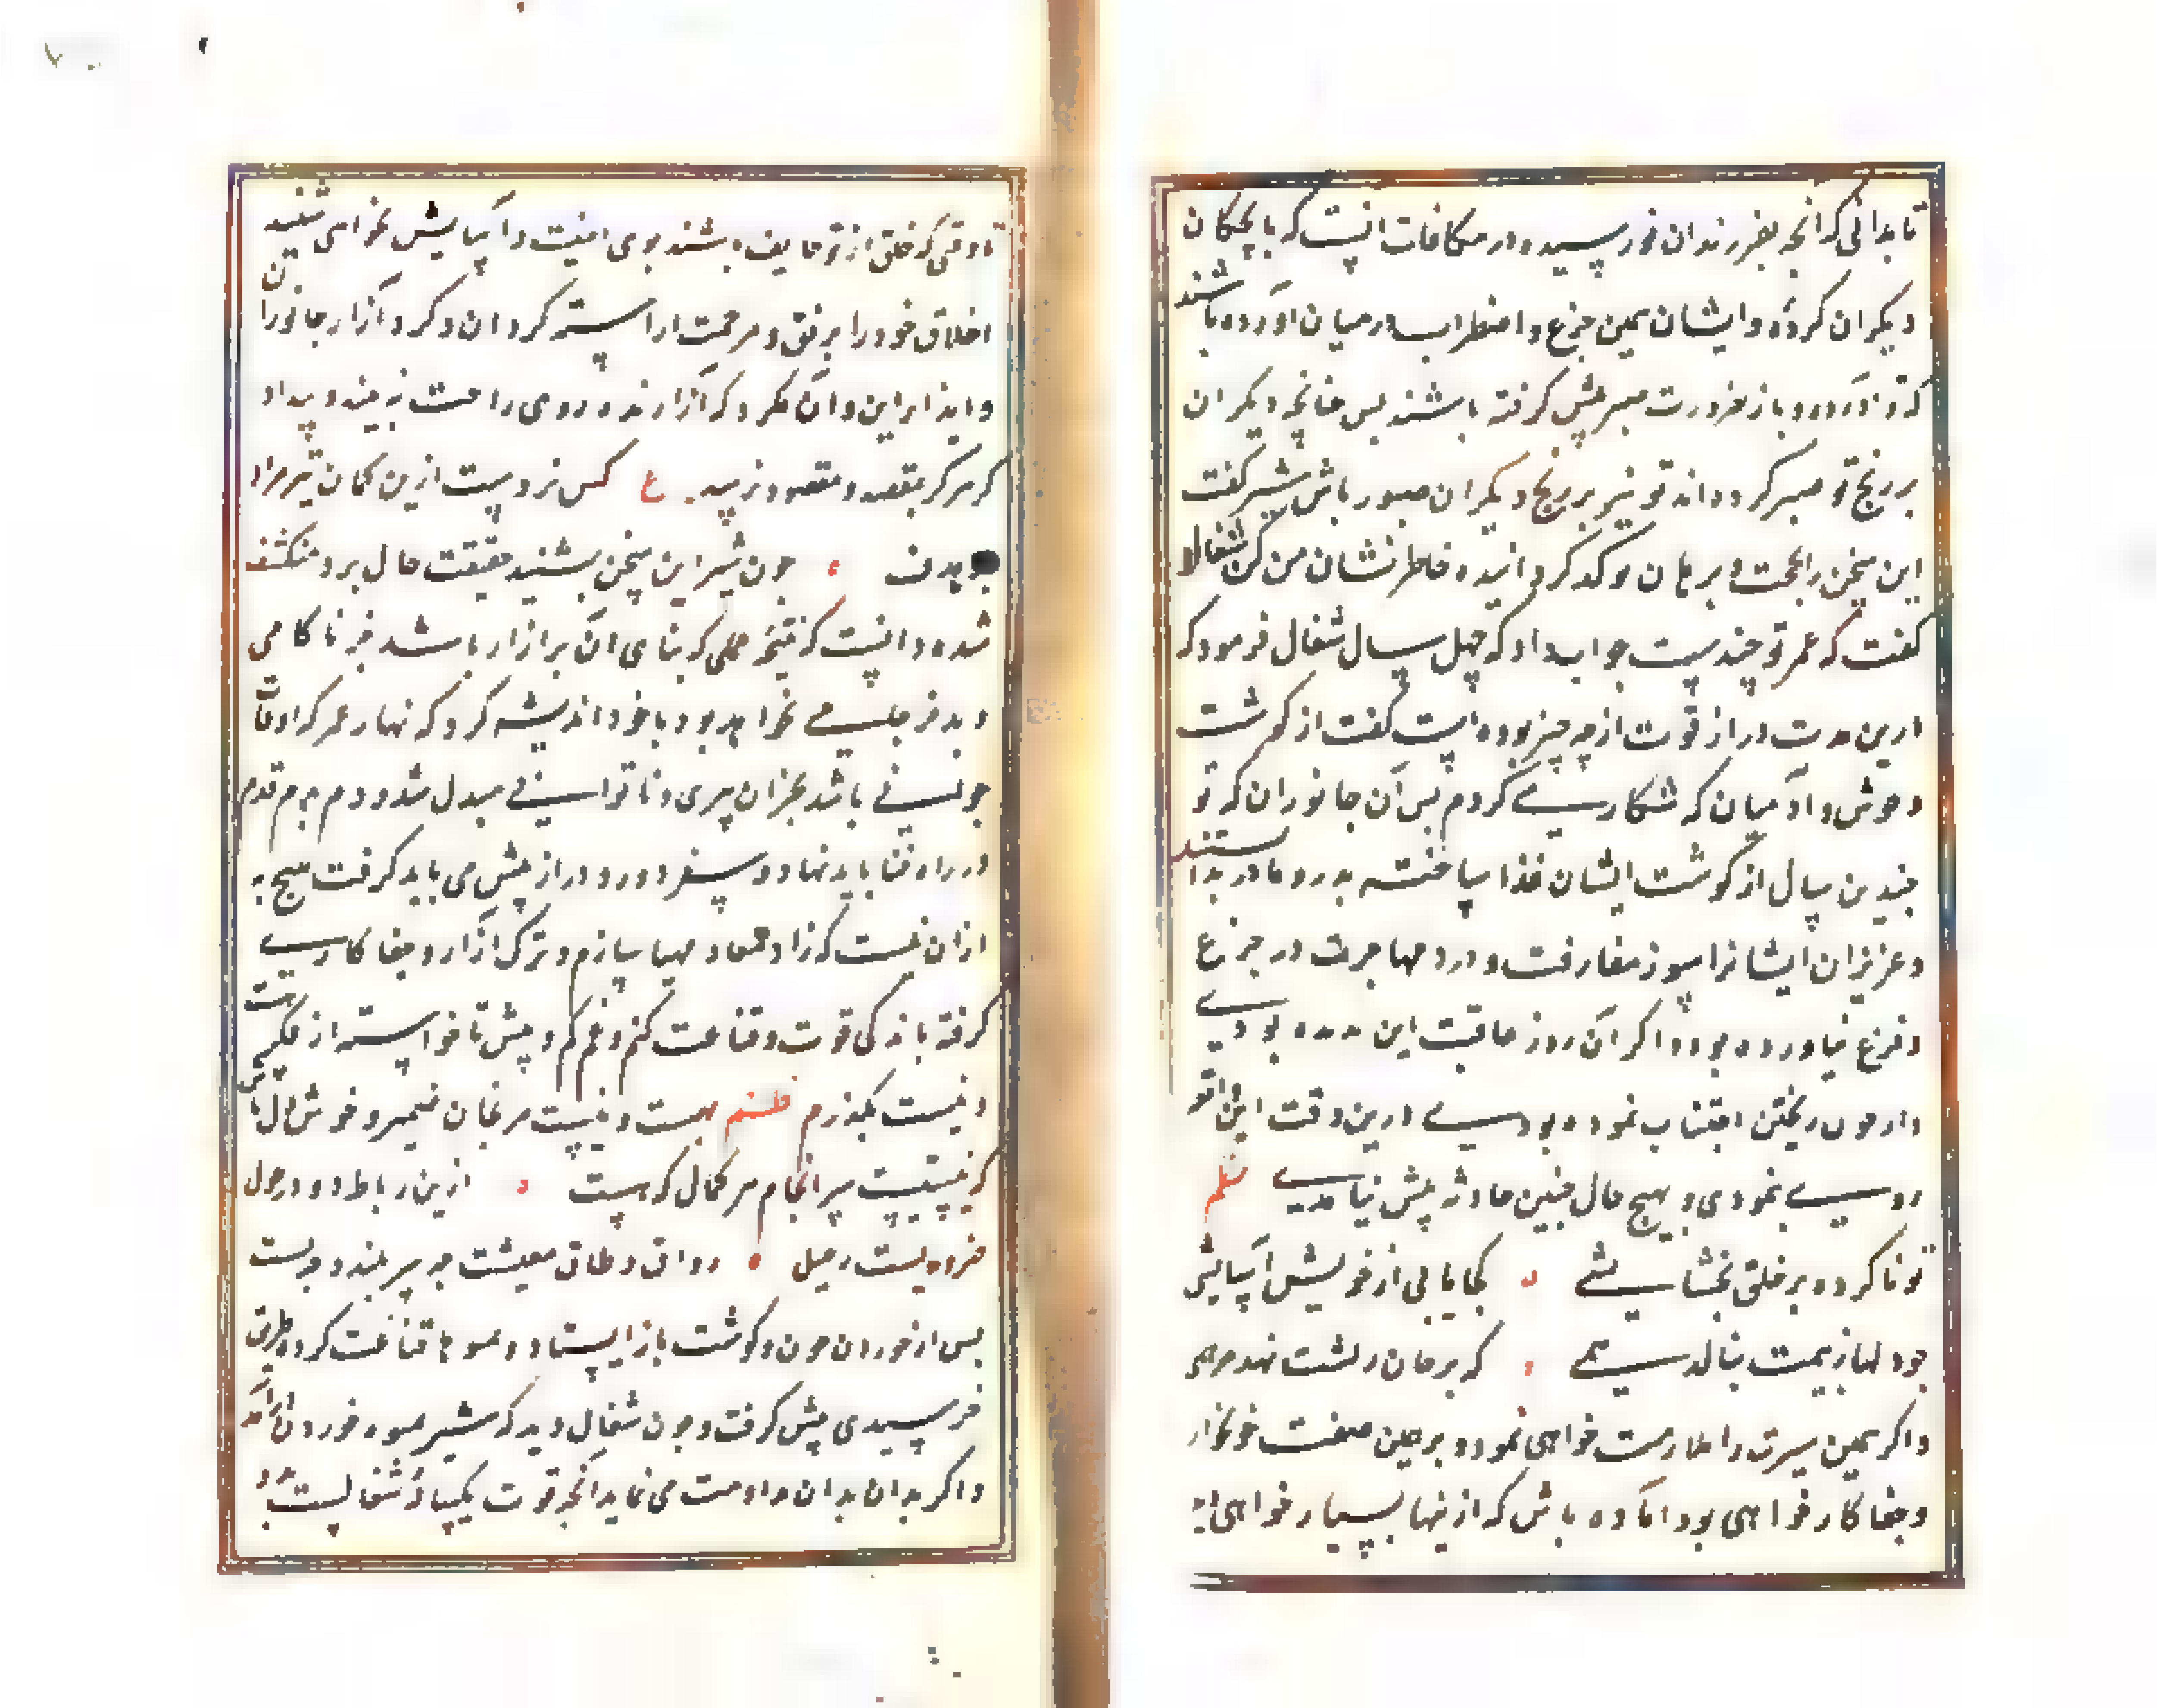 تا بدانی که آنچه بفرزندان تو رسیده در مکافات آنست که با بچکان
دیکران کردهٔ و ایشان همین جزع و اضطراب در میان آورده باشند
که تو آوردهٔ و باز بضرورت صبر پیش کرفته باشند پس چنانچه دیکران
بر رنج تو صبر کرده‌اند تو نیز بر رنج دیکران صبور باش شیر کفت
این سخن را بحجت و برهان موکد کردانیده خاطرنشان من کن شغال
کفت که عمر تو چندست جواب داد که چهل سال شغال فرمود که
درین مدت دراز قوت از چه چیز بوده است کفت از کوشت
وحوش و آدمیان که شکار میکردم پس آن جانوران که تو
چندین سال از کوشت ایشان غذا ساخته پدر و مادر نداشتند
و عزیزان ایشانرا سوز مفارقت و درد مهاجرت در جزع
و فزع نیاورده بود و اکر آن روز عاقبت این دیده بودی
و از خون ریختن اجتناب نموده بودی درین وقت این واقعه
روی ننمودی و بهیچ حال چنین حادثه پیش نیامدی نظم
تو ناکرده بر خلق بخشایشی کجا یابی از خویش آسایشی
چو دلها ز بیمت بنالد همی که بر جان ریشت نهد مرهمی
و اکر همین سیرت را ملازمت خواهی نمود و بر همین صفت خونخوار
و جفاکار خواهی بود آماده باش که ازینها بسیار خواهی دید
تا وقتی که خلق از تو خایف باشند بوی امنیت و آسایش نخواهی شنید
اخلاق خود را برفق و مرحمت آراسته کردان و کرد آزار جانوران
و ایذاء این و آن مکرد که آزارنده روی راحت نه بیند و بیداد
کر هرکز بمقصد و مقصود نرسد ع کس نزدست ازین کمان تیر مراد
بر هدف چون شیر این سخن بشنید حقیقت حال برو منکشف
شده دانست که نتیجهٔ عملی که بنای آن بر آزار باشد جز ناکامی
و بدفرجامی نخواهد بود با خود اندیشه کرد که بهار عمر که اوقات
جوانی باشد بخزان پیری و ناتوانی مبدل شد و دم بدم قدم
در راه فنا باید نهاد و سفر دور و دراز پیش می باید کرفت هیچ به
ازان نیست که زاد معاد مهیا سازم و ترک آزار و جفاکاری
کرفته باندکی قوت قناعت کنم و غم کم و بیش نا خواسته از هست
و نیست بکذرم نظم بهست و نیست مرنجان ضمیر و خوش دل باش
که نیستیست سرانجام هر کمال که هست ازین رباط دو در چون
ضرورتست رحیل رواق و طاق معیشت چه سربلند و چه پست
پس از خوردن خون و کوشت باز ایستاد و بمیوه قناعت کرده طریق
خرسندی پیش کرفت و چون شغال دید که شیر میوه خوردن آمد
و اکر بدان مداومت می نماید آنچه قوت یکسالهٔ شغالست